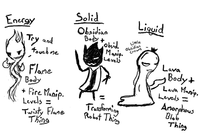 Energy
Try and
touch me
Flame
Body
+ Fire Manip.
Levels =
Twisty Flame
Thing
Solid
Obsidian
Body +
Obsid.
Manip.
Levels
=
Transforming
Robot Thing
Liquid
Little
Obsidian
Lava
Body +
Lava Manip.
Levels =
Amorphous
Blob
Thing